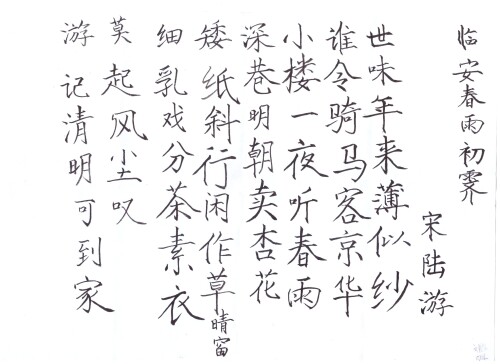 临安春雨初霁
宋陆游
世味年来薄似纱
谁令骑马客京华
小楼一夜听春雨
深巷明朝卖杏花
矮纸斜行闲作草晴窗
细乳戏分茶素衣
莫起风尘叹
游记清明可到家